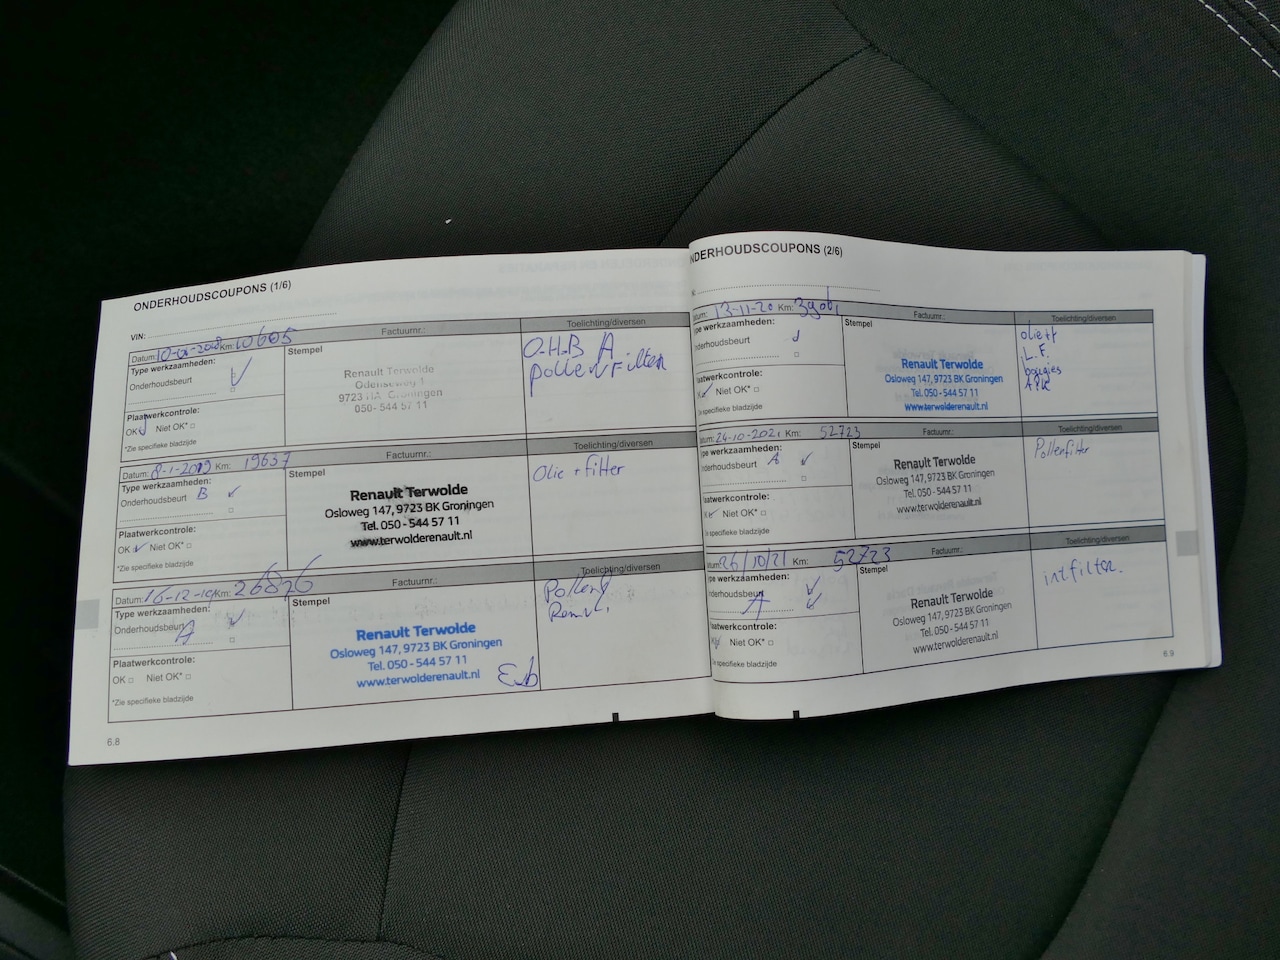 ONDERHOUDSCOUPONS (1/6)
VIN:
Datum: 10-01-2018 Km: 10605 Factuurnr.: Toelichting/diversen
Type werkzaamheden:
Onderhoudsbeurt
Plaatwerkcontrole:
OK Niet OK*
*Zie specifieke bladzijde
Stempel
Renault Terwolde
Odenseweg 1
9723 HA Groningen
050- 544 57 11
O-H-B A
pollenFilter
Datum: 8-1-2019 Km: 19637 Factuurnr.: Toelichting/diversen
Type werkzaamheden:
Onderhoudsbeurt B
Plaatwerkcontrole:
OK Niet OK*
*Zie specifieke bladzijde
Stempel
Renault Terwolde
Osloweg 147, 9723 BK Groningen
Tel. 050 - 544 57 11
www.terwolderenault.nl
Olie + filter
Datum: 16-12-19 Km: 26876 Factuurnr.: Toelichting/diversen
Type werkzaamheden:
Onderhoudsbeurt A
Plaatwerkcontrole:
OK Niet OK*
*Zie specifieke bladzijde
Stempel
Renault Terwolde
Osloweg 147, 9723 BK Groningen
Tel. 050 - 544 57 11
www.terwolderenault.nl
Pollenf
6.8
NDERHOUDSCOUPONS (2/6)
tum: 13-11-20 Km: Factuurnr.: Toelichting/diversen
ype werkzaamheden:
nderhoudsbeurt
aatwerkcontrole:
K Niet OK*
e specifieke bladzijde
Stempel
Renault Terwolde
Osloweg 147, 9723 BK Groningen
Tel. 050 - 544 57 11
www.terwolderenault.nl
olie+f
L.F.
bougies
APK
tum: 24-10-2021 Km: 52723 Factuurnr.: Toelichting/diversen
ype werkzaamheden:
nderhoudsbeurt A
aatwerkcontrole:
K Niet OK*
e specifieke bladzijde
Stempel
Renault Terwolde
Osloweg 147, 9723 BK Groningen
Tel. 050 - 544 57 11
www.terwolderenault.nl
Pollenfilter
tum: 26/10/21 Km: 52723 Factuurnr.: Toelichting/diversen
ype werkzaamheden:
nderhoudsbeurt A
aatwerkcontrole:
K Niet OK*
ie specifieke bladzijde
Stempel
Renault Terwolde
Osloweg 147, 9723 BK Groningen
Tel. 050 - 544 57 11
www.terwolderenault.nl
intfilter.
6.9